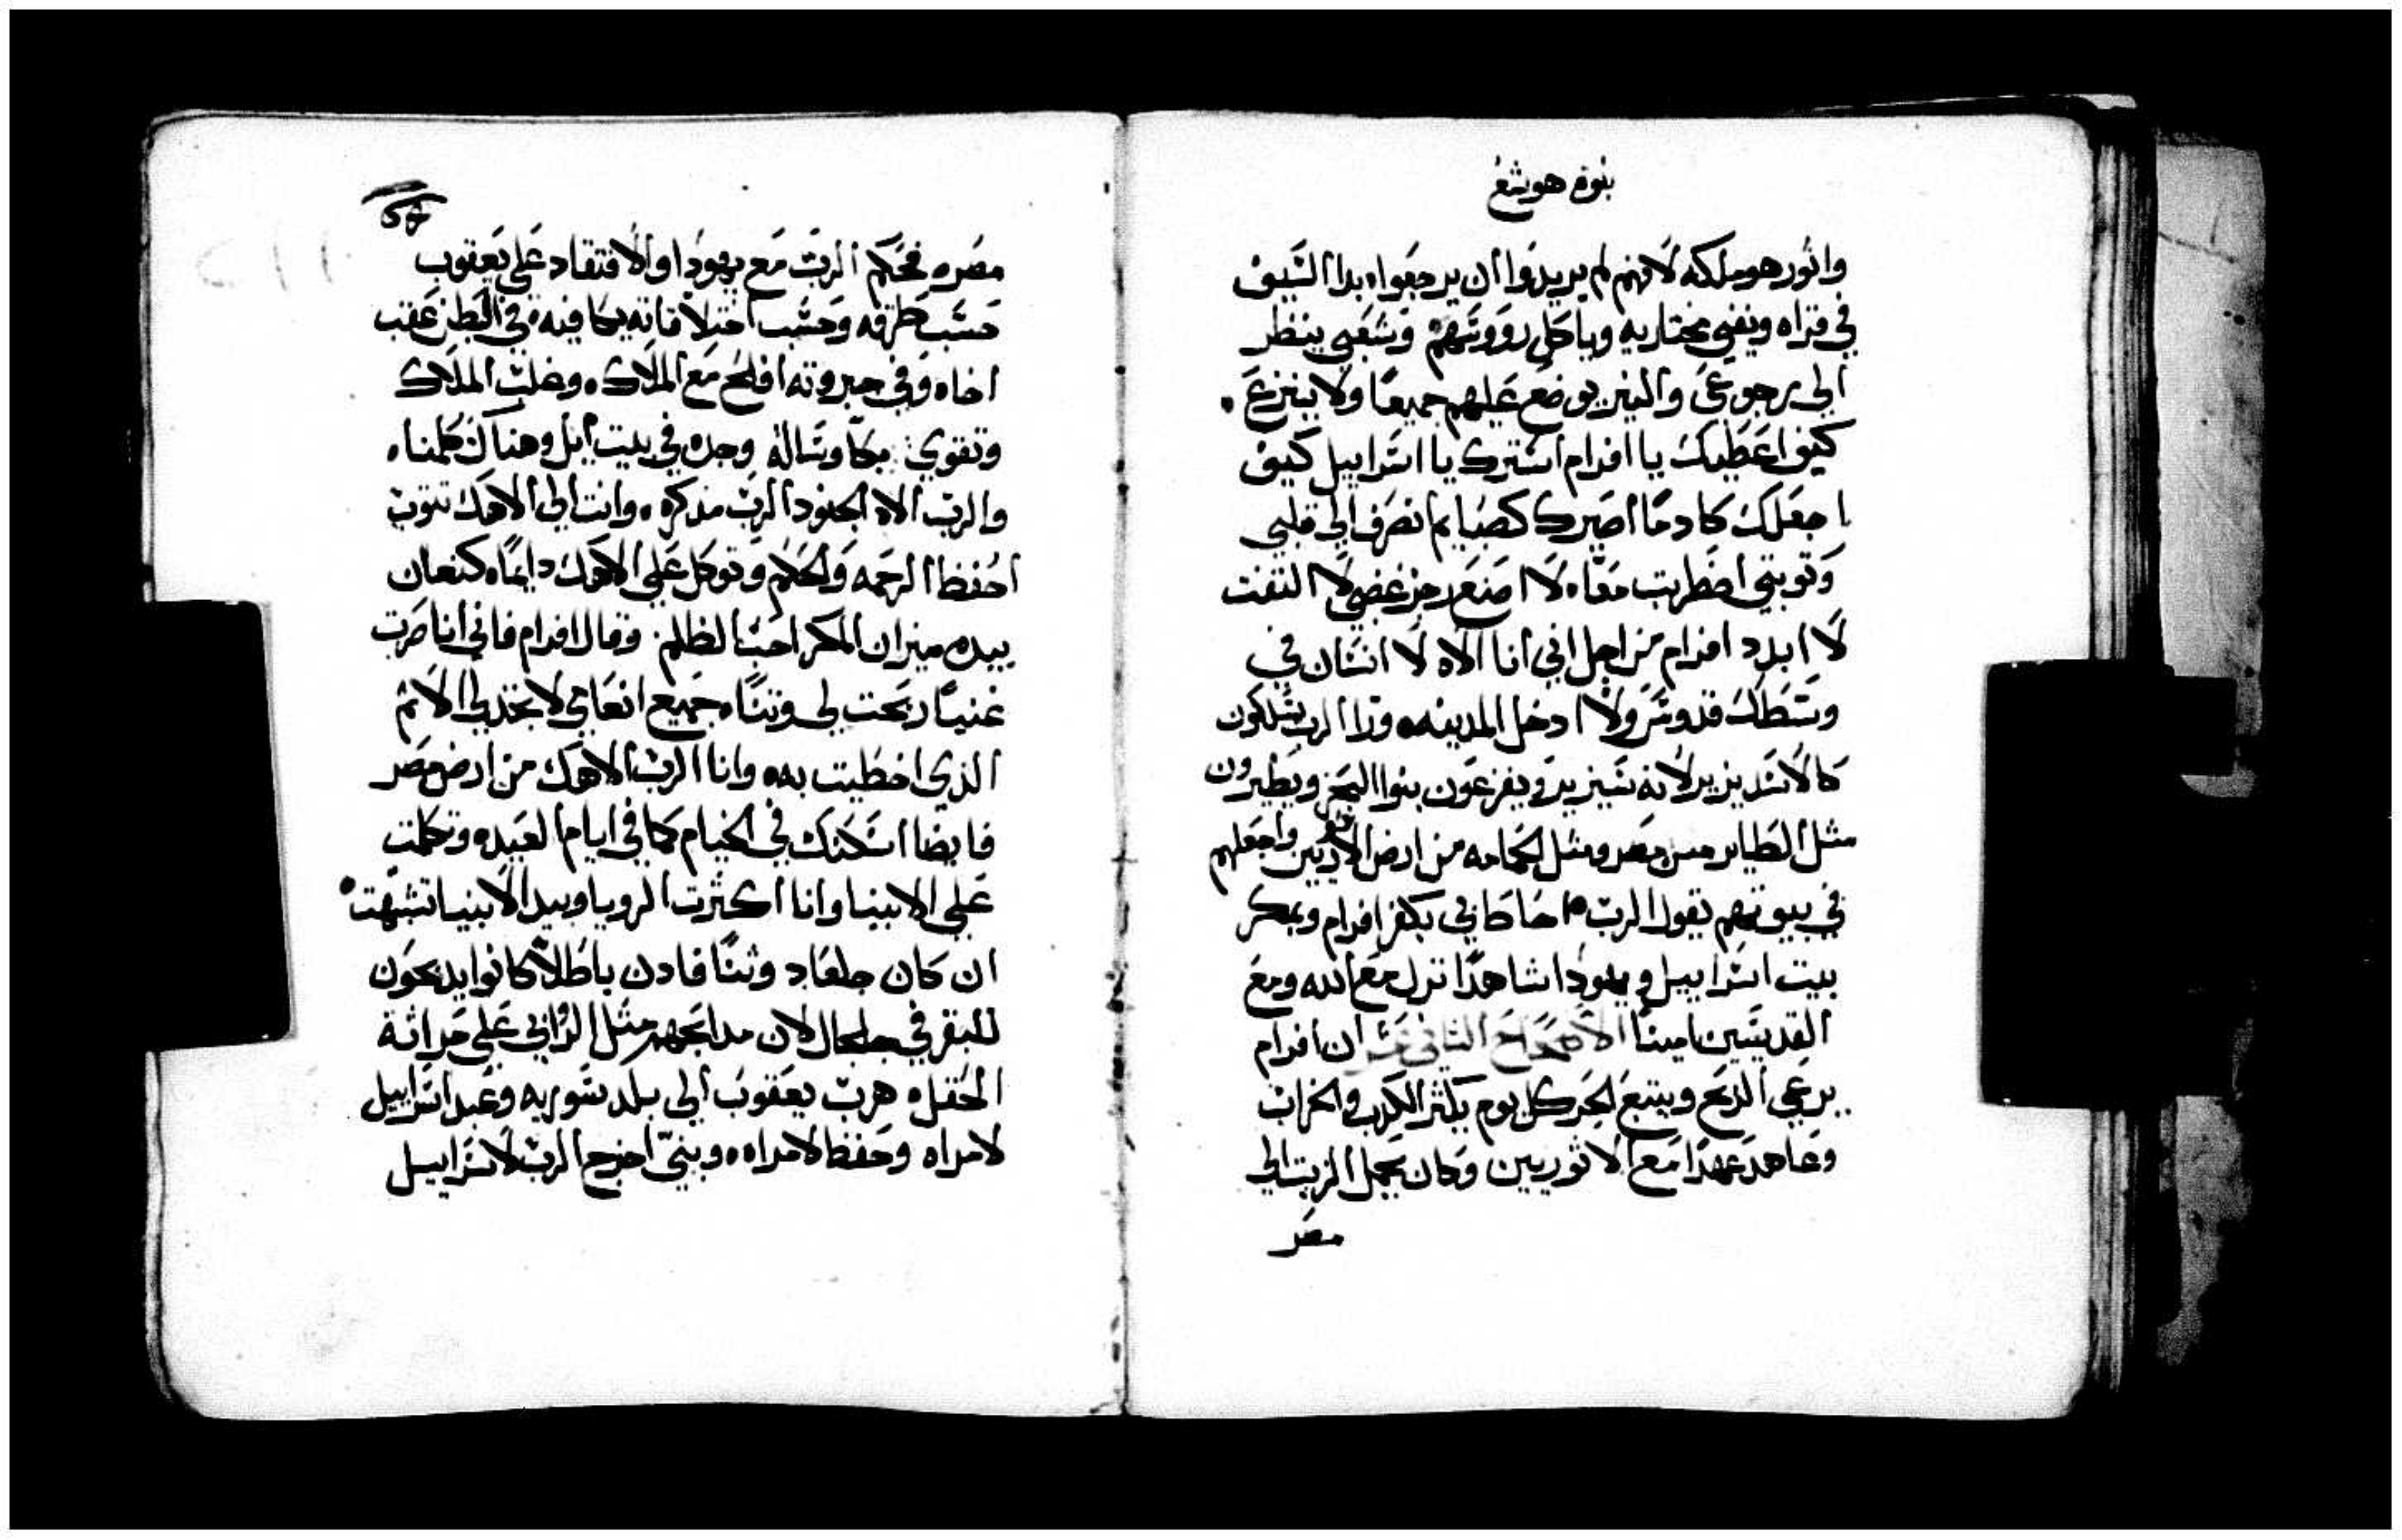 نبوة هوشع
واثور هو ملكه لانهم لم يريدوا ان يرجعوا، بدا السيف
في قراه ويفني مختاريه وياكل رووسهم وشعبي ينظر
الي رجوعي والنير يوضع عليهم جميعا ولا ينزع.
كيف اعطيك يا افرام استرك يا اسراييل كيف
اجعلك كادما اصيرك كصبايم انصرف الي قلبي
وتوبتي اضطربت معا، لا اصنع رجز غضبي لا التفت
لا ابدد افرام من اجل اني انا الاه لا انسان في
وسطك قدوس ولا ادخل المدينه، ورا الرب يسلكون
كالاسد يزير لانه سيزير ويفزعون بنوا البحر ويطيرون
مثل الطاير من مصر ومثل الحمامه من ارض الاثوريين واجعلهم
في بيوتهم يقول الرب احاط بي بكفر افرام وبمكر
بيت اسراييل ويهودا شاهدا نزل مع الله ومع
القديسين امينا الاصحاح الثاني عشر ان افرام
يرعي الريح ويتبع الحر كل يوم يكثر الكرب والخراب
وعاهد عهدا مع الاثوريين وكان يحمل الزيت الي
مصر
مصر، فحكم الرب مع يهودا والافتقاد علي يعقوب
حسب طرقه وحسب اختلاقاته يكافيه، في البطن عقب
اخاه وفي جبروته افلح مع الملاك، وغلب الملاك
وتقوي بكا وساله وجده في بيت ايل وهناك كلمنا،
والرب الاه الجنود الرب مذكره، وانت الي الاهك تتوب
احفظ الرحمه والحكم وتوكل علي الاهك دايما، كنعان
بيده ميزان المكر احب الظلم وقال افرام فاني انا صرت
غنيا ربحت لي وثنا، جميع اتعابي لا تجد لي الاثم
الذي اخطيت به، وانا الرب الاهك من ارض مصر
فايضا اسكنك في الخيام كما في ايام العيد، وتكلمت
علي الانبيا وانا اكثرت الرويا وبيد الانبيا تشبهت.
ان كان جلعاد وثنا فاذن باطلا كانوا يذبحون
للبقر في جلجال لان مذابحهم مثل الروابي علي حراثة
الحقل، هرب يعقوب الي بلد سوريه وعبد اسراييل
لامراه وحفظ لامراه، وبنبي اخرج الرب لاسراييل